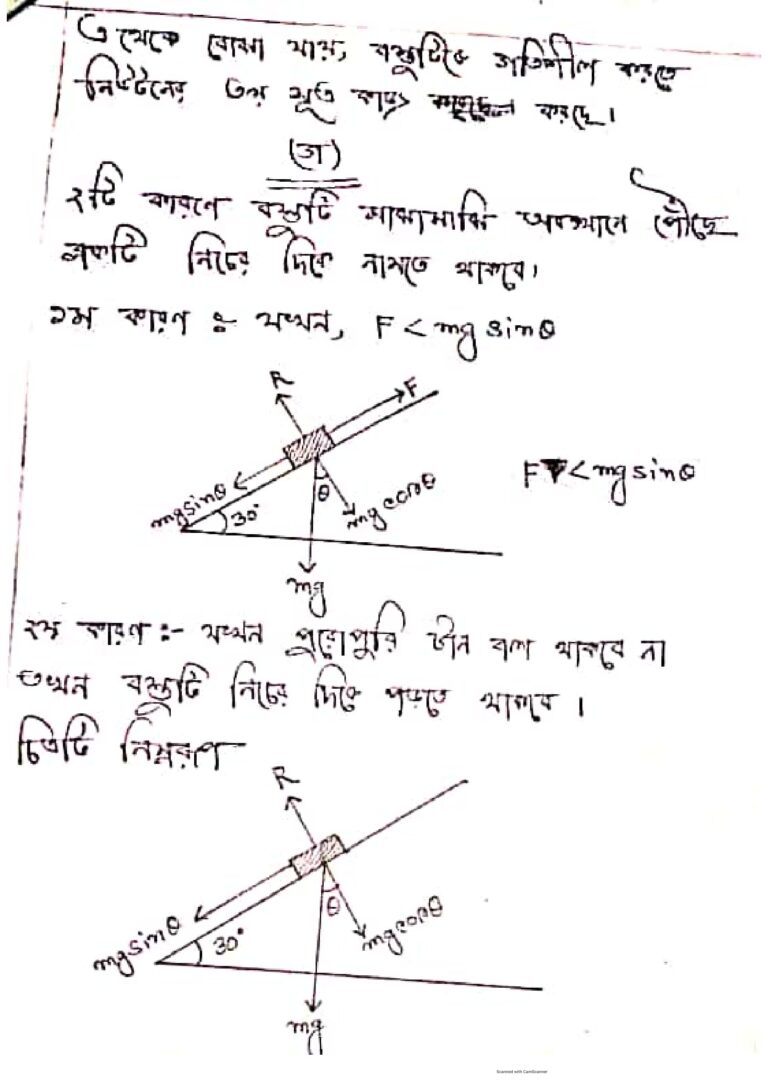 থেকে বোঝা যায়, বস্তুটিকে গতিশীল করতে
নিউটনের ৩য় সূত্র কাজ করছে।
(গ)
২টি কারণে বস্তুটি মাঝামাঝি অবস্থানে পৌঁছে
নিচের দিকে নামতে থাকবে।
১ম কারণ :- যখন, F < mg sinθ
R
F
mg sinθ
30°
θ
mg cosθ
mg
F < mg sinθ
২য় কারণ :- যখন পুরোপুরি টান বল থাকবে না
তখন বস্তুটি নিচের দিকে পড়তে থাকবে।
চিত্রটি নিম্নরূপ
R
mg sinθ
30°
θ
mg cosθ
mg
Scanned with CamScanner